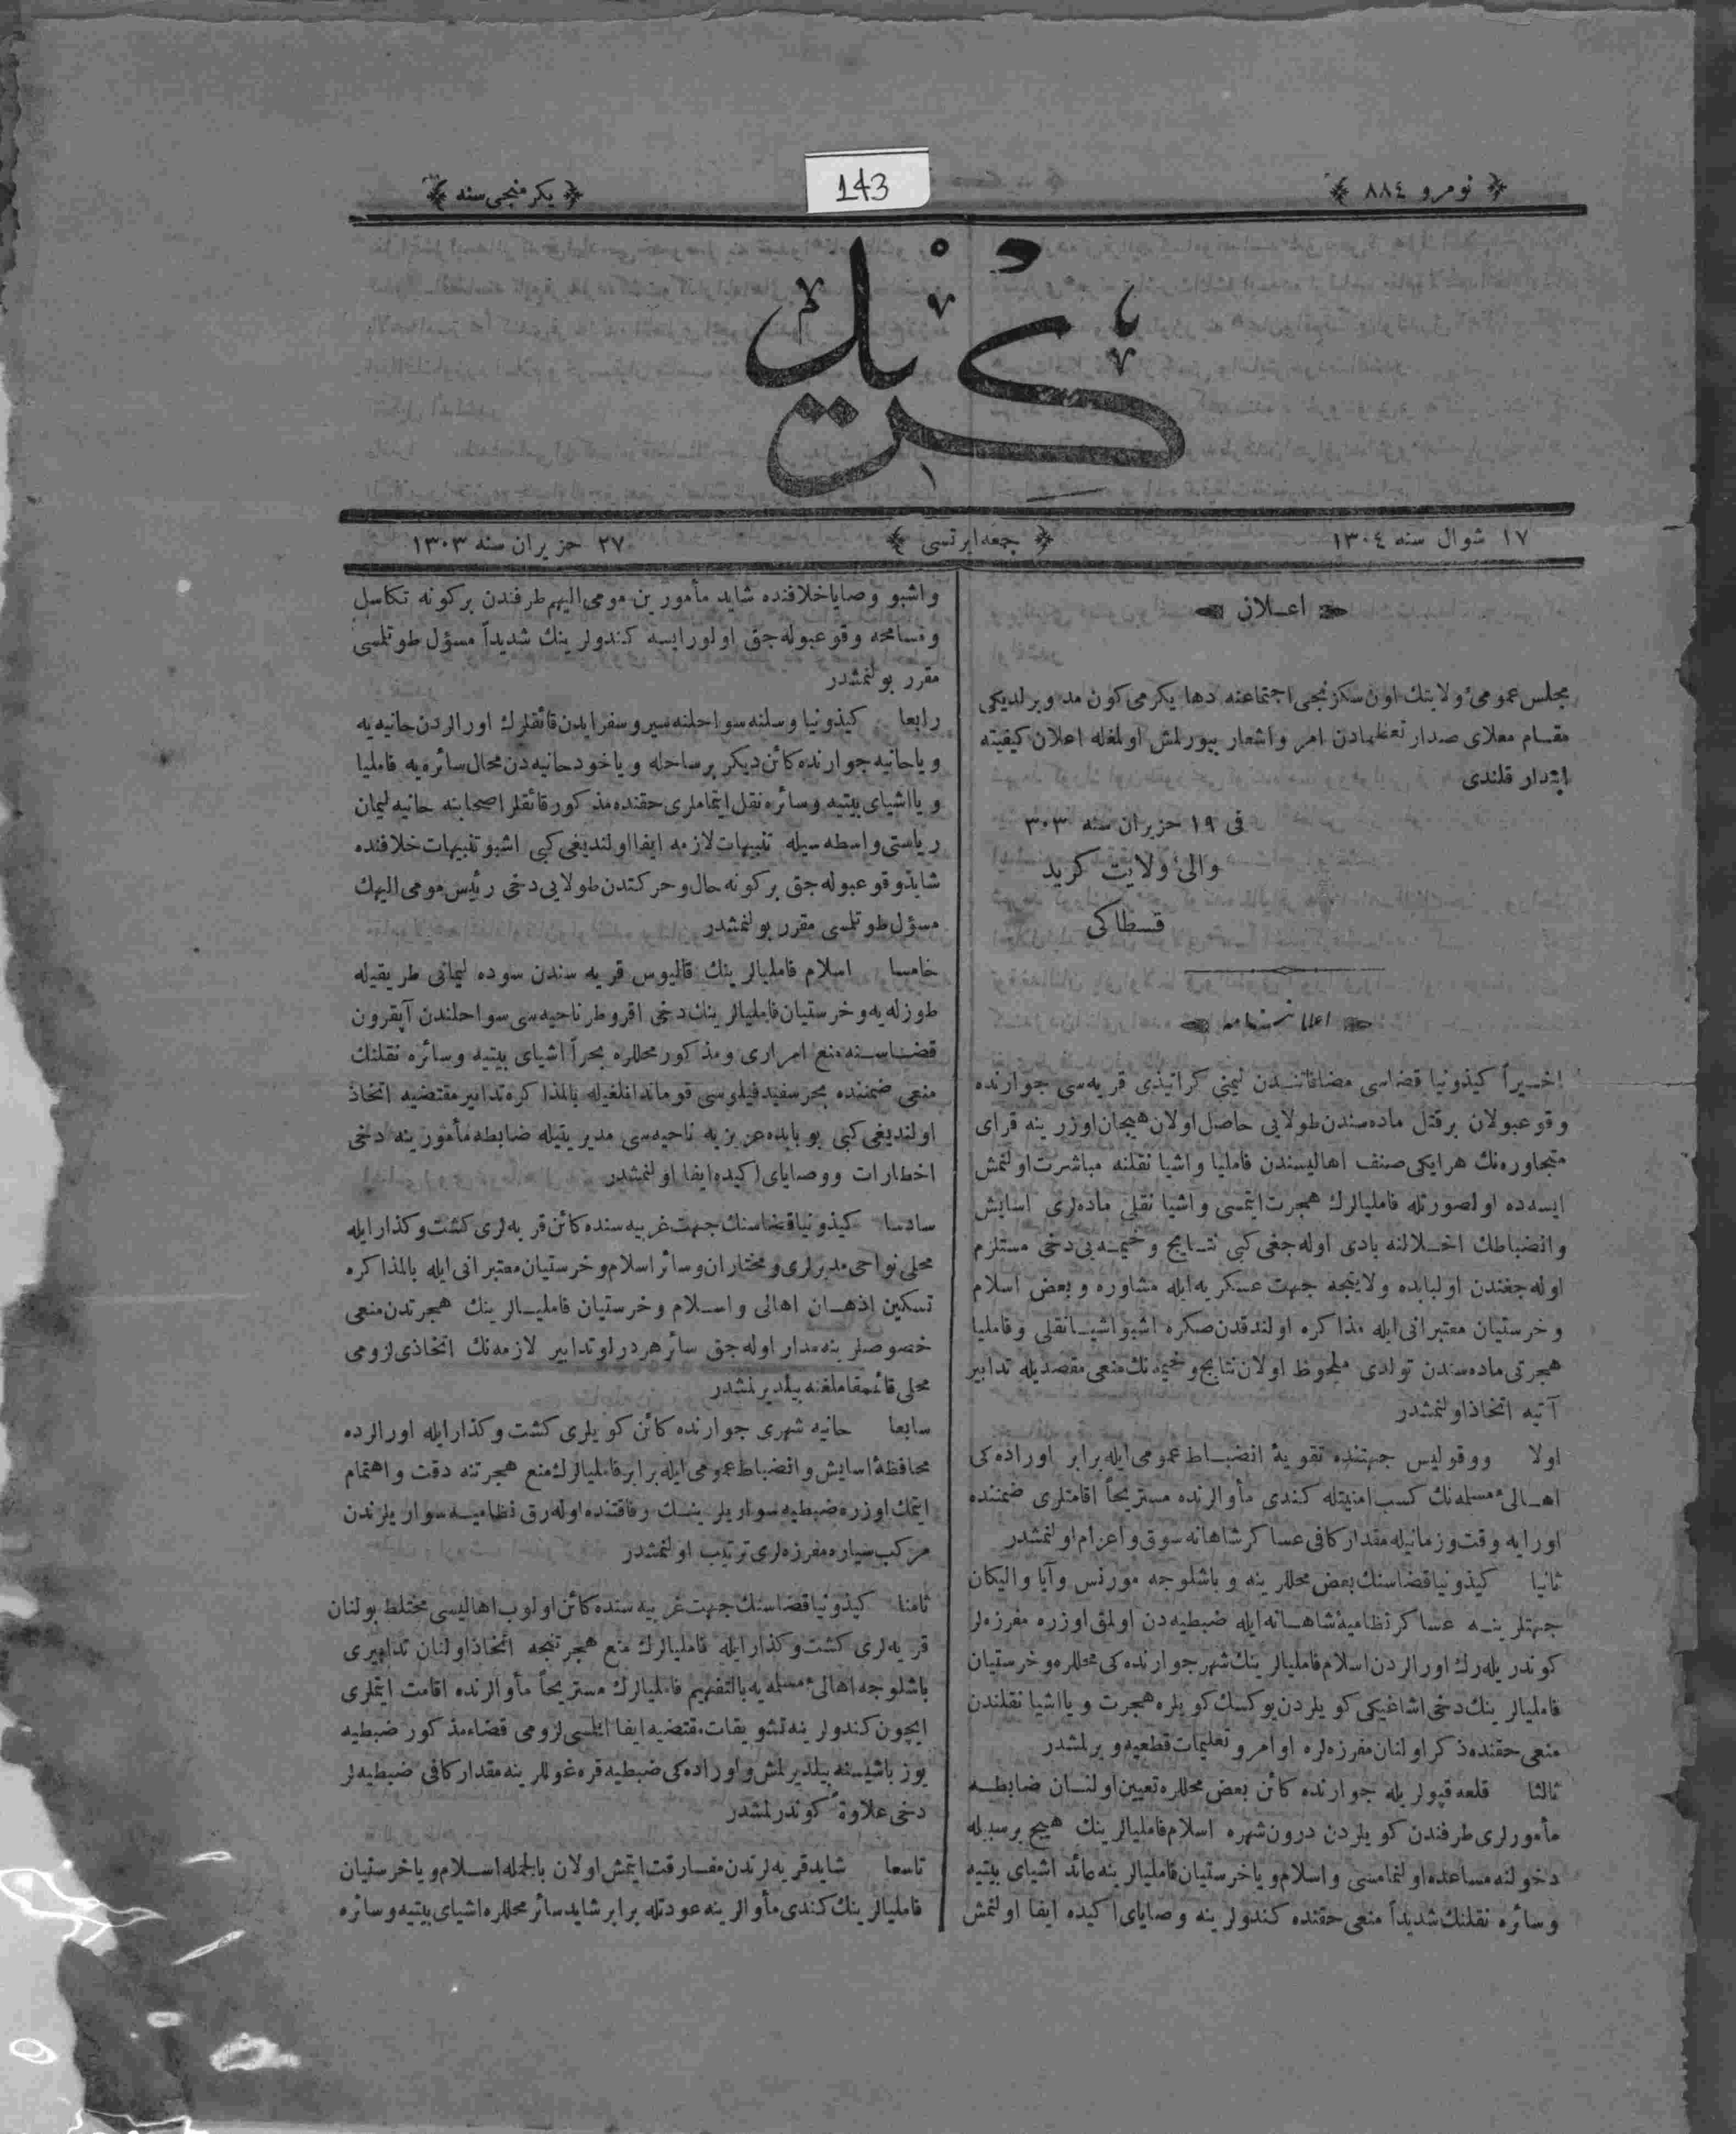 نومرو ٨٨٤
143
يكرمنجى سنه
كريد
١٧ شوال سنه ١٣٠٤
جمعه ايرتسى
٢٧ حزيران سنه ١٣٠٣
اعلان
مجلس عمومئ ولايتك اون سكزنجى اجتماعنه دها يكرمى كون مد ويرلديكى
مقام معلاى صدارتعظمادن امر واشعار بيورلمش اولمغله اعلان كيفيته
ابتدار قلندى
فى ١٩ حزيران سنه ٣٠٣
والئ ولايت كريد
قسطاكى
اعلاننامه
اخيراً كيذونيا قضاسى مضافاتندن ليمنى كرانيذى قريه‌سى جوارنده
وقوعبولان برقتل ماده‌سندن طولايى حاصل اولان هيجان اوزرينه قراى
متجاوره‌نك هرايكى صنف اهاليسندن فامليا واشيا نقلنه مباشرت اولنمش
ايسه‌ده اولصورتله فامليالرك هجرت ايتمسى واشيا نقلى ماده‌لرى اسايش
وانضباطك اخلالنه بادى اوله‌جغى كبى نتايج وخيمه‌يى دخى مستلزم
اوله‌جغندن اولبابده ولايتجه جهت عسكريه‌ايله مشاوره و بعض اسلام
وخرستيان معتبرانى ايله مذاكره اولندقدن صكره اشبو اشيا نقلى وفامليا
هجرتى ماده‌سندن تولدى ملحوظ اولان نتايج وخيمه‌نك منعى مقصديله تدابير
آتيه اتخاذ اولنمشدر
اولا ووقوليس جهتنده تقويۀ انضباط عمومى ايله برابر اوراده‌كى
اهالئ مسلمه‌نك كسب امنيتله كندى مأوالرنده مستريحاً اقامتلرى ضمننده
اورايه وقت وزمانيله مقدار كافى عساكر شاهانه سوق واعزام اولنمشدر
ثانيا كيذونيا قضاسنك بعض محللرينه و باشلوجه مورنس وآيا واليكان
جهتلرينه عساكر نظاميۀ شاهانه ايله ضبطيه‌دن اولمق اوزره مفرزه‌لر
كوندريله‌رك اورالردن اسلام فامليالرينك شهر جوارنده‌كى محللره وخرستيان
فامليالرينك دخى اشاغيكى كويلردن يوكسك كويلره هجرت ويا اشيا نقلندن
منعى حقنده ذكر اولنان مفرزه‌لره اوامر وتعليمات قطعيه ويرلمشدر
ثالثا قلعه قپولريله جوارنده كائن بعض محللره تعيين اولنان ضابطه
مأمورلرى طرفندن كويلردن درون شهره اسلام فامليالرينك هيچ برسببله
دخولنه مساعده اولنمامسى واسلام وياخرستيان فامليالرينه عائد اشياى بيتيه
وسائره نقلنك شديداً منعى حقنده كندولرينه وصاياى اكيده ايفا اولنمش
واشبو وصايا خلافنده شايد مأمورين مومى اليهم طرفندن بركونه تكاسل
ومسامحه وقوعبوله‌جق اولورايسه كندولرينك شديداً مسؤل طوتلمسى
مقرر بولنمشدر
رابعا كيذونيا وسلنه سواحلنه سيروسفر ايدن قائقلرك اورالردن حانيه‌يه
وياحانيه جوارنده كائن ديكر برساحله وياخود حانيه‌دن محال سائره‌يه فامليا
ويااشياى بيتيه وسائره نقل ايتماملرى حقنده مذكور قائقلر اصحابنه حانيه ليمان
رياستى واسطه‌سيله تنبيهات لازمه ايفا اولنديغى كبى اشبو تنبيهات خلافنده
شايد وقوعبوله‌جق بركونه حال وحركتدن طولايى دخى رئيس مومى اليهك
مسؤل طوتلمسى مقرر بولنمشدر
خامسا اسلام فامليالرينك قاليوس قريه‌سندن سوده ليمانى طريقيله
طوزله‌يه وخرستيان فامليالرينك دخى اقروطر ناحيه‌سى سواحلندن آپقرون
قضاسنه منع امرارى ومذكور محللره بحراً اشياى بيتيه وسائره نقلنك
منعى ضمننده بحرسفيد فيلوسى قوماندانلغيله بالمذاكره تدابير مقتضيه اتخاذ
اولنديغى كبى بو بابده عزيزيه ناحيه‌سى مديريتيله ضابطه مأمورينه دخى
اخطارات ووصاياى اكيده ايفا اولنمشدر
سادسا كيذونيا قضاسنك جهت غربيه‌سنده كائن قريه‌لرى كشت وكذار ايله
محلى نواحى مديرلرى ومختاران وسائر اسلام وخرستيان معتبرانى ايله بالمذاكره
تسكين اذهان اهالى واسلام وخرستيان فامليالرينك هجرتدن منعى
خصوصلرينه مدار اوله‌جق سائر هردرلو تدابير لازمه‌نك اتخاذى لزومى
محلى قائمقاملغنه بيلديرلمشدر
سابعا حانيه شهرى جوارنده كائن كويلرى كشت وكذار ايله اورالرده
محافظۀ اسايش وانضباط عمومى ايله برابر فامليالرك منع هجرتنه دقت واهتمام
ايتمك اوزره ضبطيه سواريلرينك رفاقتنده اوله‌رق نظاميه سواريلرندن
مركب سياره مفرزه‌لرى ترتيب اولنمشدر
ثامنا كيذونيا قضاسنك جهت غربيه‌سنده كائن اولوب اهاليسى مختلط بولنان
قريه‌لرى كشت وكذار ايله فامليالرك منع هجرتنجه اتخاذ اولنان تدابيرى
باشلوجه اهالئ مسلمه‌يه بالتفهيم فامليالرك مستريحاً مأوالرنده اقامت ايتملرى
ايچون كندولرينه تشويقات مقتضيه ايفا ايتلسى لزومى قضاء مذكور ضبطيه
يوزباشيسنه بيلديرلمش واوراده‌كى ضبطيه قره‌غوللرينه مقدار كافى ضبطيه‌لر
دخى علاوةً كوندرلمشدر
تاسعا شايد قريه‌لرندن مفارقت ايتمش اولان بالجمله اسلام وياخرستيان
فامليالرينك كندى مأوالرينه عودتله برابر شايد سائر محللره اشياى بيتيه وسائره